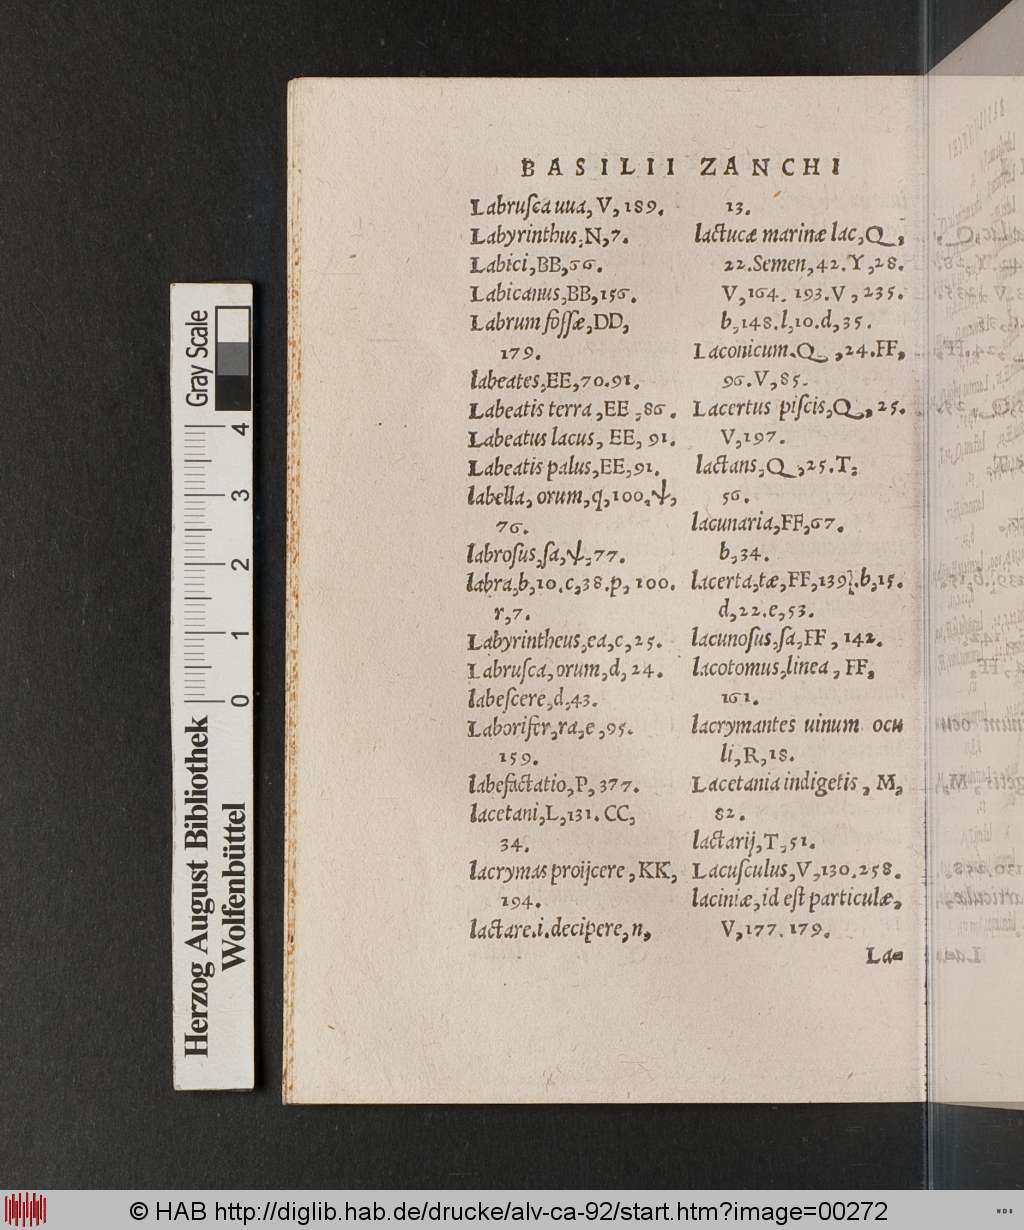 BASILII ZANCHI
Labruſca uua, V, 189.
Labyrinthus, N, 7.
Labici, BB, 56.
Labicanus, BB, 156.
Labrum foſſæ, DD,
179.
labeates, EE, 70. 91.
Labeatis terra, EE, 86.
Labeatus lacus, EE, 91.
Labeatis palus, EE, 91.
labella, orum, q, 100. ψ,
76.
labroſus, ſa, ψ, 77.
labra, b, 10. c, 38. p, 100.
r, 7.
Labyrintheus, ea, c, 25.
Labruſca, orum, d, 24.
labeſcere, d, 43.
Laborifer, ra, e, 95.
159.
labefactatio, P, 377.
lacetani, L, 131. CC,
34.
lacrymas proijcere, KK,
194.
lactare .i. decipere, n,
13.
lactucæ marinæ lac, Q,
22. Semen, 42. Y, 28.
V, 164. 193. V, 235.
b, 148. l, 10. d, 35.
Laconicum. Q, 24. FF,
96. V, 85.
Lacertus piſcis, Q, 25.
V, 197.
lactans, Q, 25. T,
56.
lacunaria, FF, 67.
b, 34.
lacerta, tæ, FF, 139. b, 15.
d, 22. e, 53.
lacunoſus, ſa, FF, 142.
lacotomus, linea, FF,
161.
lacrymantes uinum ocu
li, R, 18.
Lacetania indigetis, M,
82.
lactarij, T, 51.
Lacuſculus, V, 130. 258.
laciniæ, id eſt particulæ,
V, 177. 179.
La-
Gray Scale
4
3
2
1
0
Herzog August Bibliothek
Wolfenbüttel
© HAB http://diglib.hab.de/drucke/alv-ca-92/start.htm?image=00272
WDB